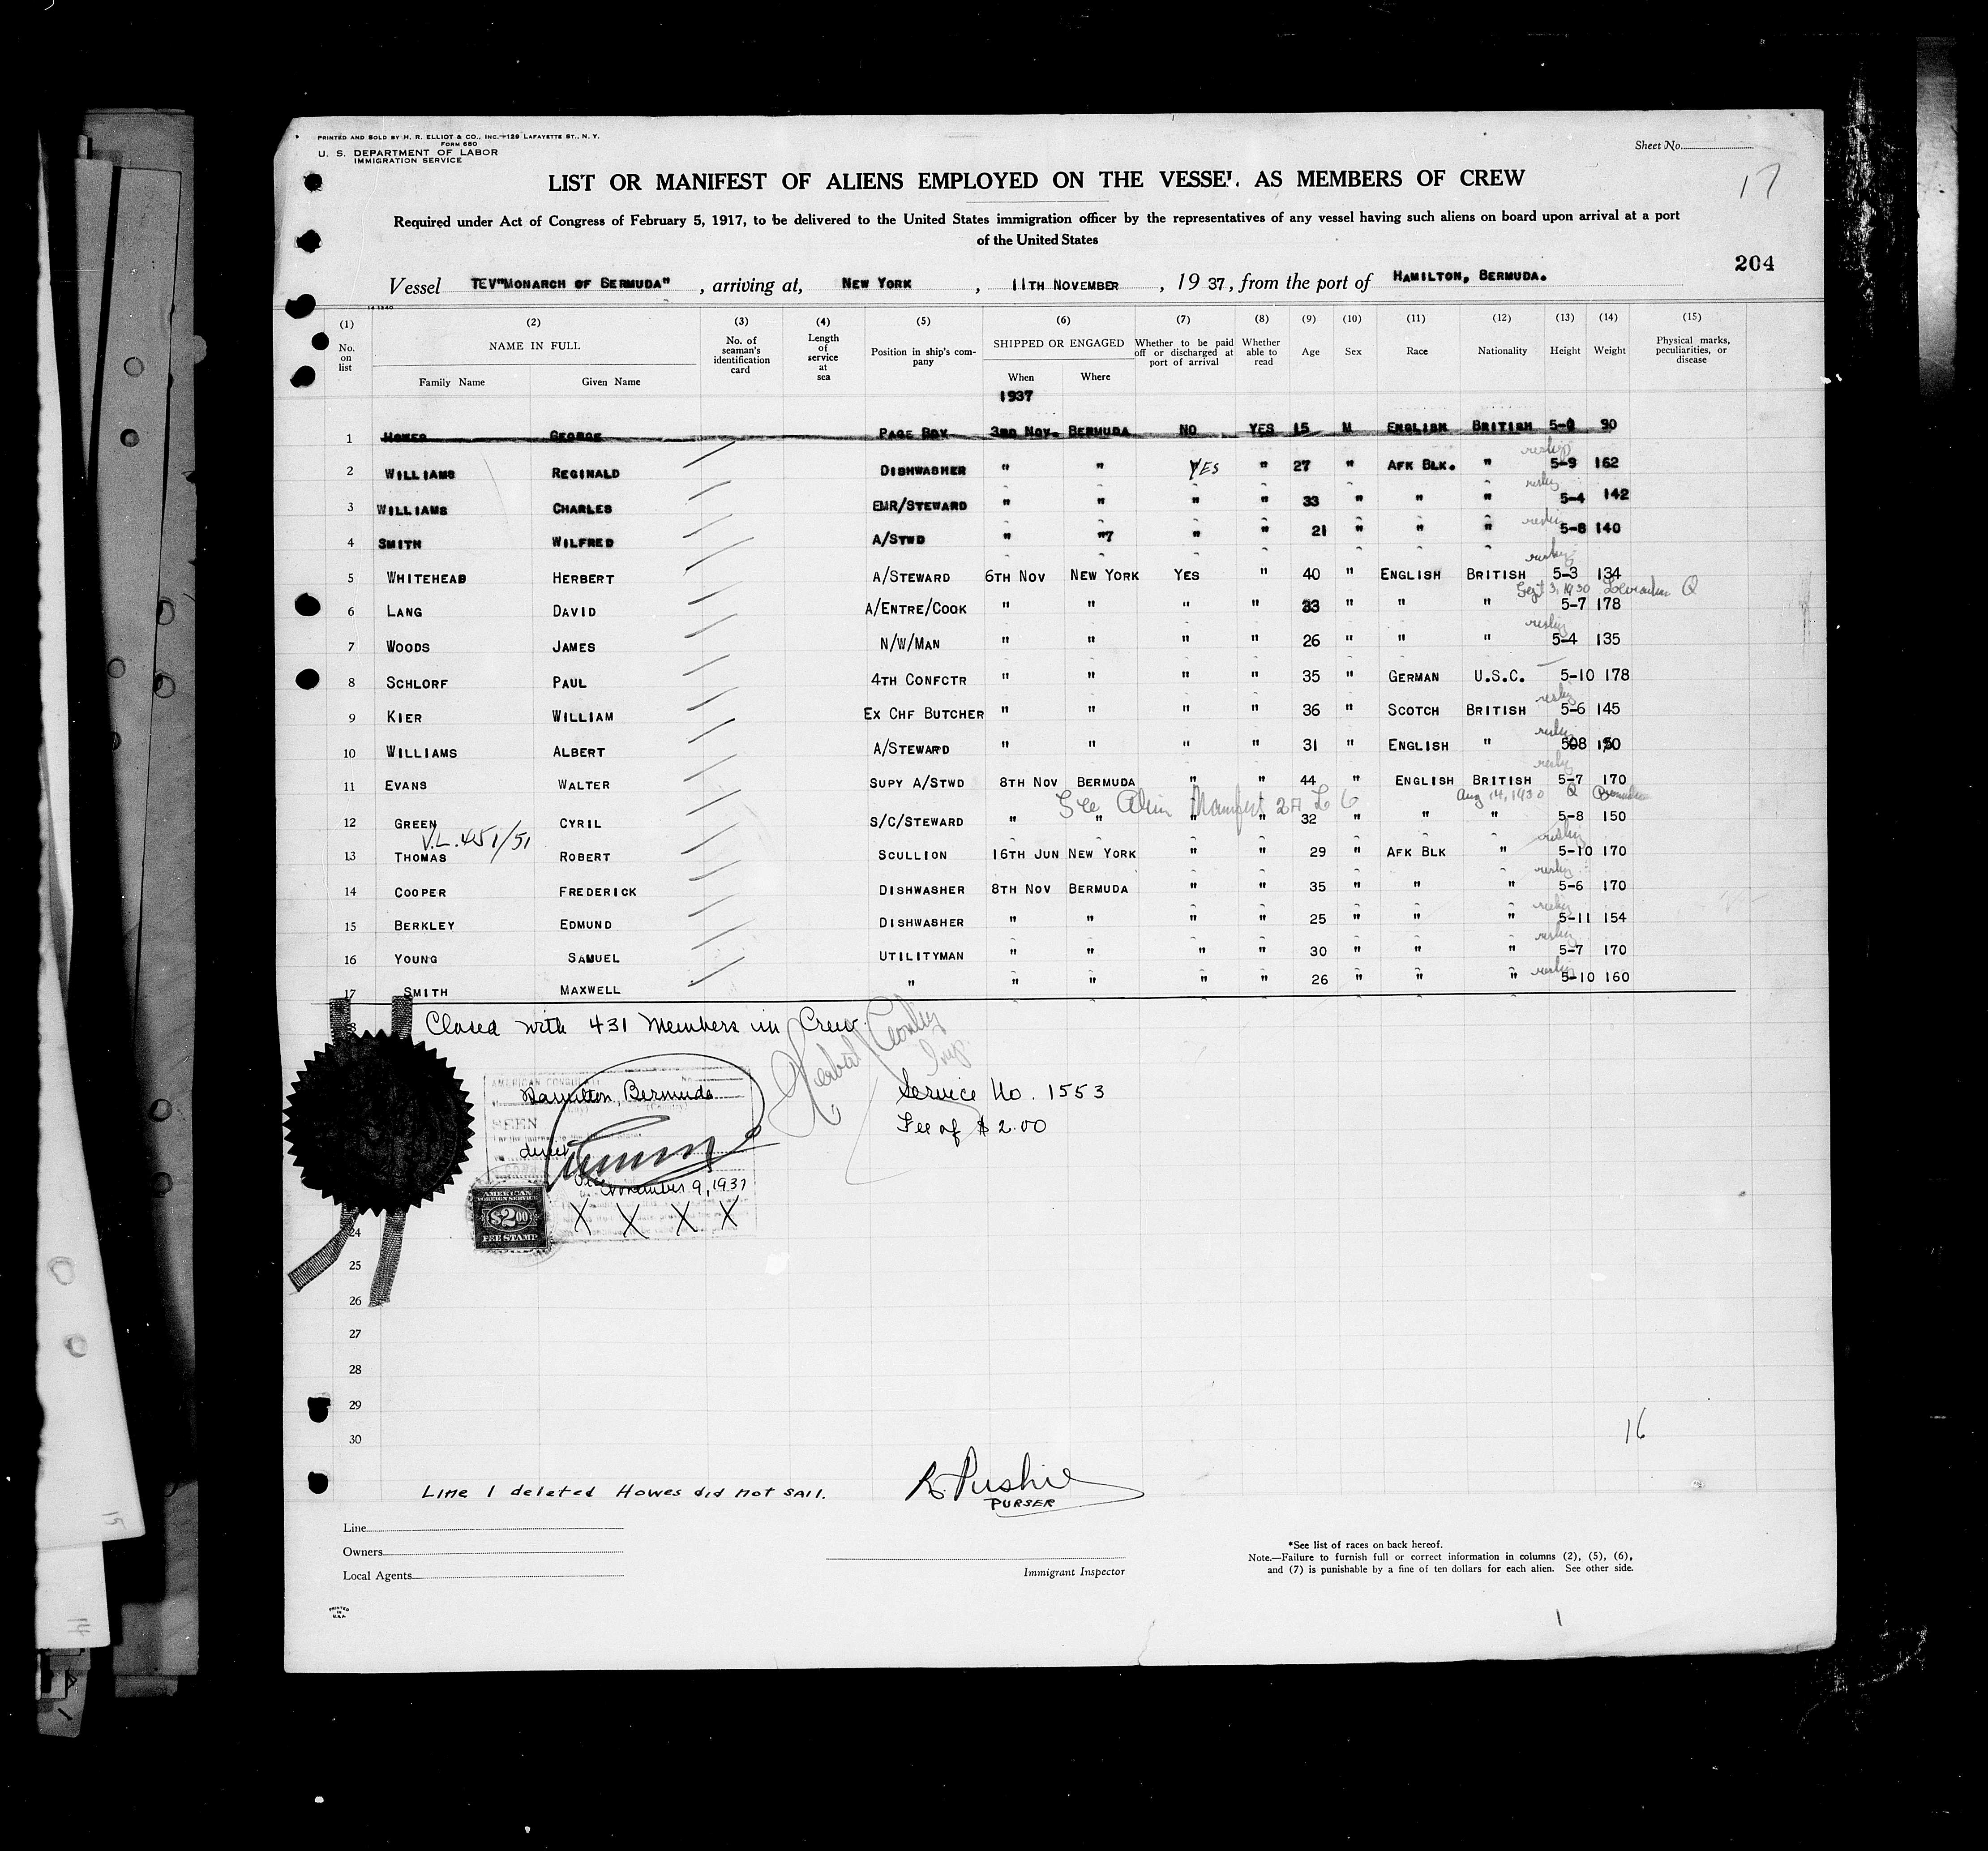 PRINTED AND SOLD BY H. R. ELLIOT & CO., INC. 129 LAFAYETTE ST., N. Y.
FORM 680
U. S. DEPARTMENT OF LABOR
IMMIGRATION SERVICE
Sheet No.
17
LIST OR MANIFEST OF ALIENS EMPLOYED ON THE VESSEL AS MEMBERS OF CREW
Required under Act of Congress of February 5, 1917, to be delivered to the United States immigration officer by the representatives of any vessel having such aliens on board upon arrival at a port
of the United States
204
Vessel TEV"MONARCH OF BERMUDA", arriving at, NEW YORK, 11TH NOVEMBER, 1937, from the port of HAMILTON, BERMUDA.
14 1240
(1) (2) (3) (4) (5) (6) (7) (8) (9) (10) (11) (12) (13) (14) (15)
No. on list NAME IN FULL No. of seaman's identification card Length of service at sea Position in ship's company SHIPPED OR ENGAGED Whether to be paid off or discharged at port of arrival Whether able to read Age Sex Race Nationality Height Weight Physical marks, peculiarities, or disease
Family Name Given Name When Where
1937
1 HOWES GEORGE PAGE BOY 3RD NOV. BERMUDA NO YES 15 M ENGLISH BRITISH 5-0 90
2 WILLIAMS REGINALD DISHWASHER " " YES " 27 " AFK BLK. " 5-9 162
3 WILLIAMS CHARLES EMR/STEWARD " " " " 33 " " " 5-4 142
4 SMITH WILFRED A/STWD " "7 " " 21 " " " 5-8 140
5 WHITEHEAD HERBERT A/STEWARD 6TH NOV NEW YORK YES " 40 " ENGLISH BRITISH 5-3 134
Sept 3, 1930 Q
6 LANG DAVID A/ENTRE/COOK " " " " 33 " " " 5-7 178
7 WOODS JAMES N/W/MAN " " " " 26 " " " 5-4 135
8 SCHLORF PAUL 4TH CONFCTR " " " " 35 " GERMAN U.S.C. 5-10 178
9 KIER WILLIAM EX CHF BUTCHER " " " " 36 " SCOTCH BRITISH 5-6 145
10 WILLIAMS ALBERT A/STEWARD " " " " 31 " ENGLISH "
11 EVANS WALTER SUPY A/STWD 8TH NOV BERMUDA " " 44 " ENGLISH BRITISH 5-7 170
See Alien Manifest 2A L 6 Aug 14, 1930 Q
12 GREEN CYRIL S/C/STEWARD " " " " 32 " " " 5-8 150
V.L. 451/51
13 THOMAS ROBERT SCULLION 16TH JUN NEW YORK " " 29 " AFK BLK " 5-10 170
14 COOPER FREDERICK DISHWASHER 8TH NOV BERMUDA " " 35 " " " 5-6 170
15 BERKLEY EDMUND DISHWASHER " " " " 25 " " " 5-11 154
16 YOUNG SAMUEL UTILITYMAN " " " " 30 " " " 5-7 170
17 SMITH MAXWELL " " " " " 26 " " " 5-10 160
Closed with 431 Members in Crew.
AMERICAN CONSULATE
Hamilton, Bermuda
SEEN
Service No. 1553
Fee of $2.00
November 9, 1937
AMERICAN
FOREIGN SERVICE
$2.00
FEE STAMP
X X X X
24
25
26
27
28
29
30
16
Line 1 deleted Howes did not sail.
R. Pushie
PURSER
Line
Owners
Local Agents
Immigrant Inspector
*See list of races on back hereof.
Note.—Failure to furnish full or correct information in columns (2), (5), (6),
and (7) is punishable by a fine of ten dollars for each alien. See other side.
PRINTED
IN
U.S.A.
15
14